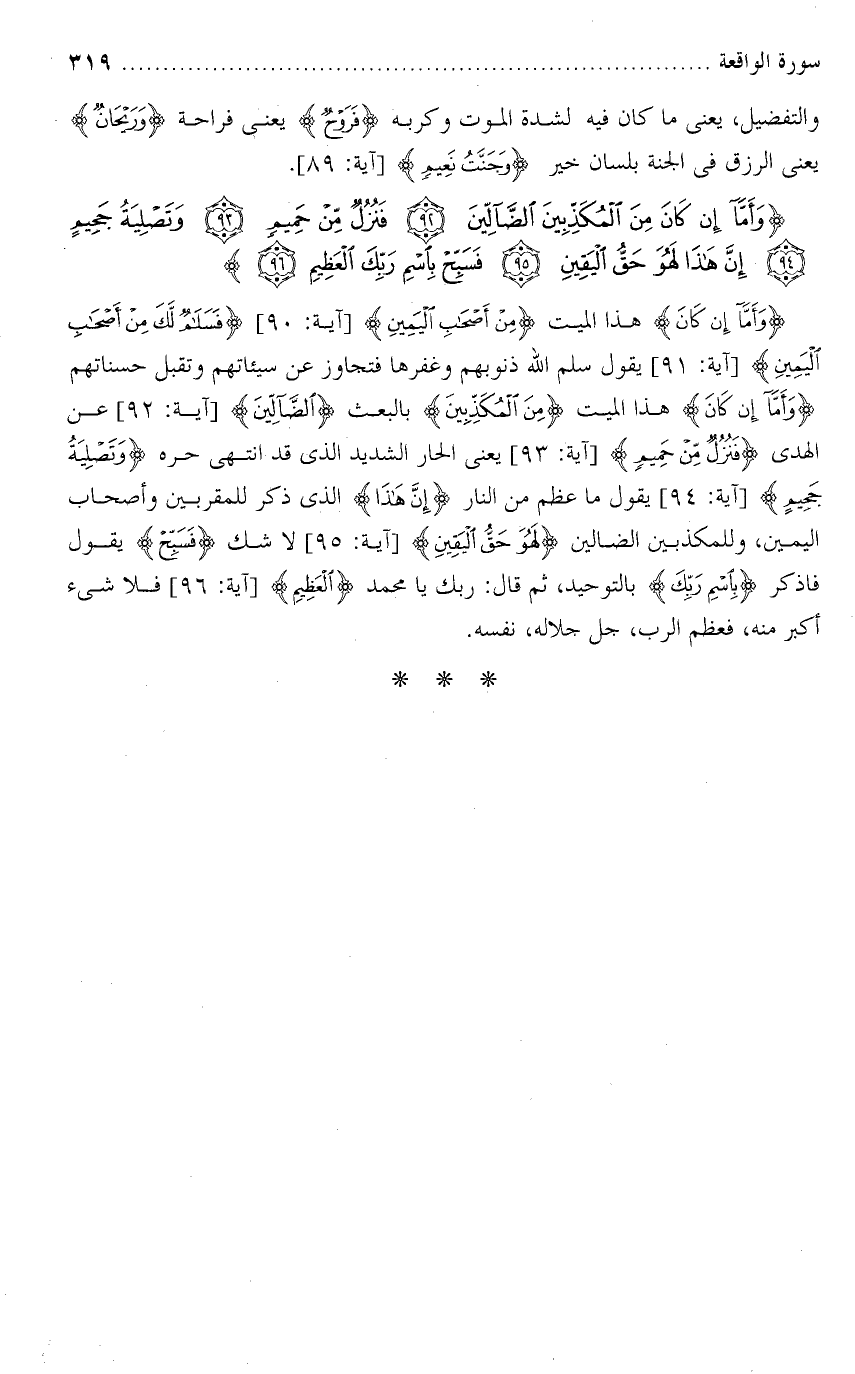 سورة الواقعة ........................................................................ ٣١٩
والتفضيل، يعنى ما كان فيه لشدة الموت وكربه ﴿فَرَوْحٌ﴾ يعنى فراحة ﴿وَرَيْحَانٌ﴾
يعنى الرزق فى الجنة بلسان خير ﴿وَجَنَّتُ نَعِيمٍ﴾ [آية: ٨٩].
﴿وَأَمَّآ إِن كَانَ مِنَ ٱلْمُكَذِّبِينَ ٱلضَّآلِّينَ ٩٢ فَنُزُلٌ مِّنْ حَمِيمٍ ٩٣ وَتَصْلِيَةُ جَحِيمٍ
٩٤ إِنَّ هَٰذَا لَهُوَ حَقُّ ٱلْيَقِينِ ٩٥ فَسَبِّحْ بِٱسْمِ رَبِّكَ ٱلْعَظِيمِ ٩٦ ﴾
﴿وَأَمَّآ إِن كَانَ﴾ هذا الميت ﴿مِنْ أَصْحَٰبِ ٱلْيَمِينِ﴾ [آية: ٩٠] ﴿فَسَلَٰمٌ لَّكَ مِنْ أَصْحَٰبِ
ٱلْيَمِينِ﴾ [آية: ٩١] يقول سلم الله ذنوبهم وغفرها فتجاوز عن سيئاتهم وتقبل حسناتهم
﴿وَأَمَّآ إِن كَانَ﴾ هذا الميت ﴿مِنَ ٱلْمُكَذِّبِينَ﴾ بالبعث ﴿ٱلضَّآلِّينَ﴾ [آية: ٩٢] عن
الهدى ﴿فَنُزُلٌ مِّنْ حَمِيمٍ﴾ [آية: ٩٣] يعنى الحار الشديد الذى قد انتهى حره ﴿وَتَصْلِيَةُ
جَحِيمٍ﴾ [آية: ٩٤] يقول ما عظم من النار ﴿إِنَّ هَٰذَا﴾ الذى ذكر للمقربين وأصحاب
اليمين، وللمكذبين الضالين ﴿لَهُوَ حَقُّ ٱلْيَقِينِ﴾ [آية: ٩٥] لا شك ﴿فَسَبِّحْ﴾ يقول
فاذكر ﴿بِٱسْمِ رَبِّكَ﴾ بالتوحيد، ثم قال: ربك يا محمد ﴿ٱلْعَظِيمِ﴾ [آية: ٩٦] فلا شىء
أكبر منه، فعظم الرب، جل جلاله، نفسه.
* * *